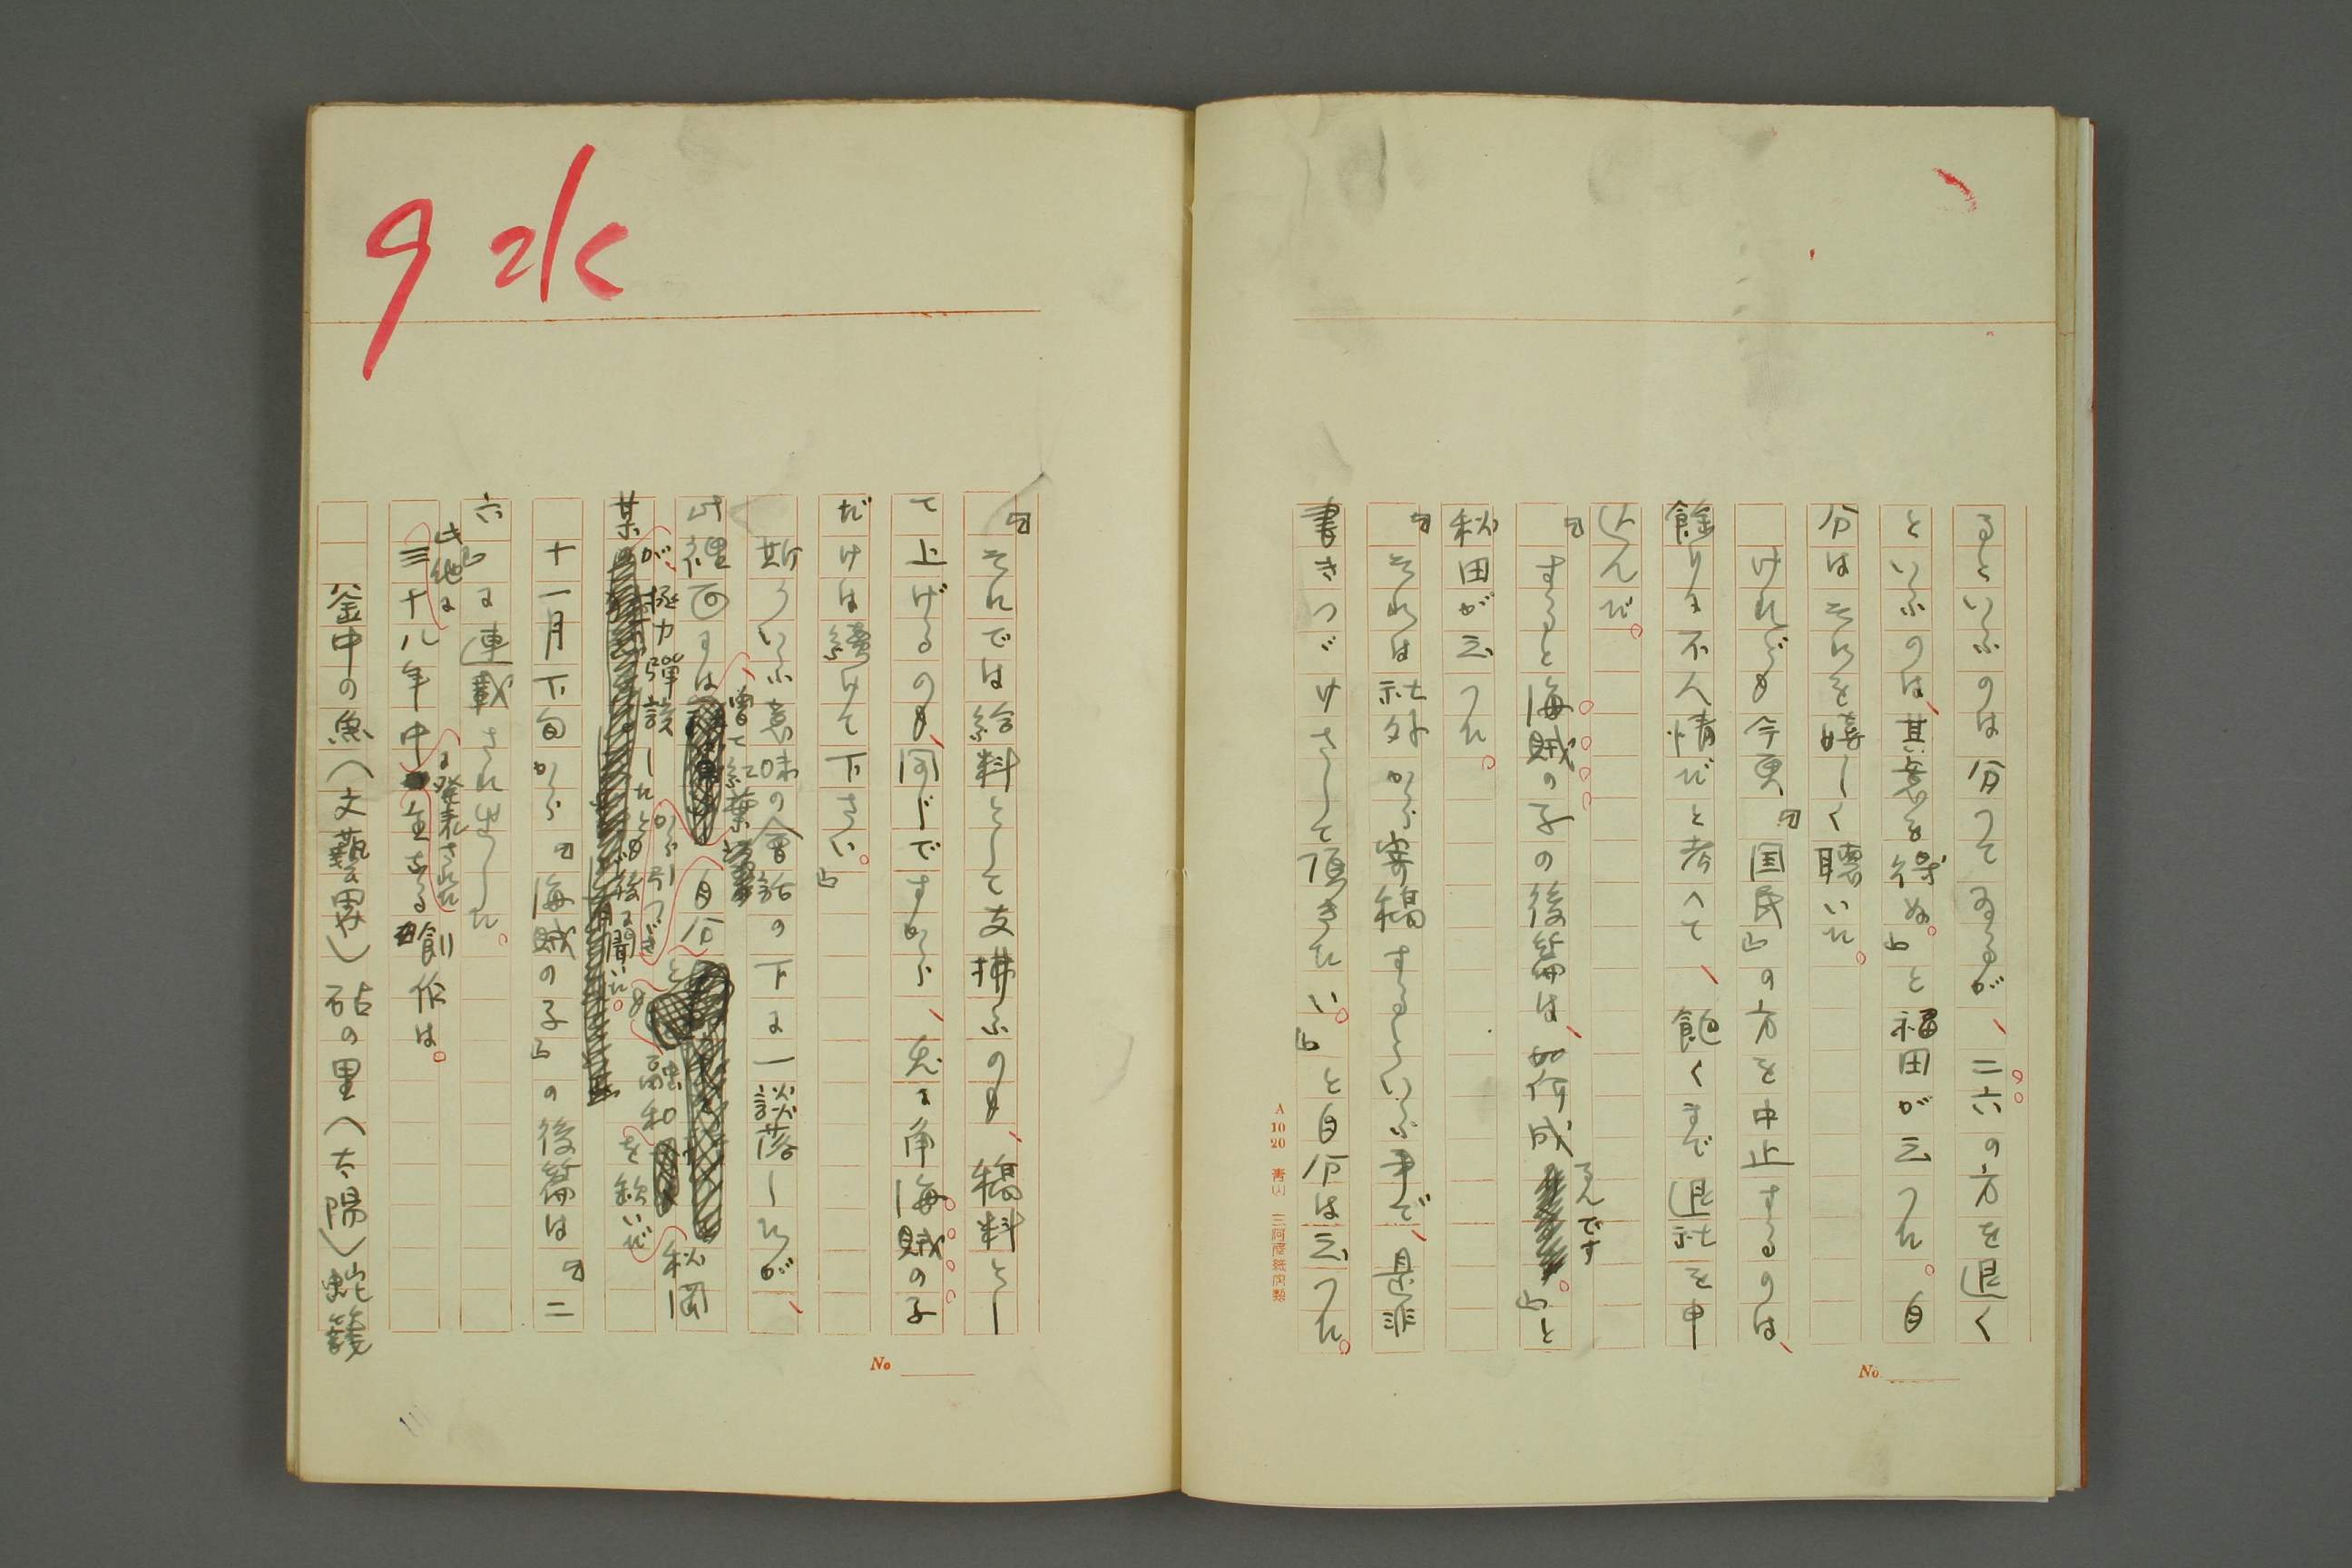 るといふのは分つてゐるが、二六の方を退く
といふのは、其意を得ぬ。』と福田が云つた。自
分はそれを嬉しく聴いた。
けれども今更『国民』の方を中止するのは、
餘りに不人情だと考へて、飽くまで退社を申
込んだ。
『すると海賊の子の後篇は、如何成るんです。』と
秋田が云つた。
『それは社外から寄稿するといふ事で、是非
書きつゞけさして頂きたい。』と自分は云つた。
A 10 20
No
『それでは給料として支拂ふのも、稿料とし
て上げるのも、同じですから、兎に角海賊の子
だけは続けて下さい。』
斯ういふ意味の會話の下に一談落したが、
此裡面には曾て紅葉
自分と秋聞
から引つゞき
も融和を欠いだ
某が極力弾談したとも後に聞いた。
十一月下旬から『海賊の子』の後篇は『二
六』に連載され出した。
此他に
三十八年中に発表された主なる創作は。
釜中の魚(文藝界)砧の里(太陽)蛇籠
No
92K